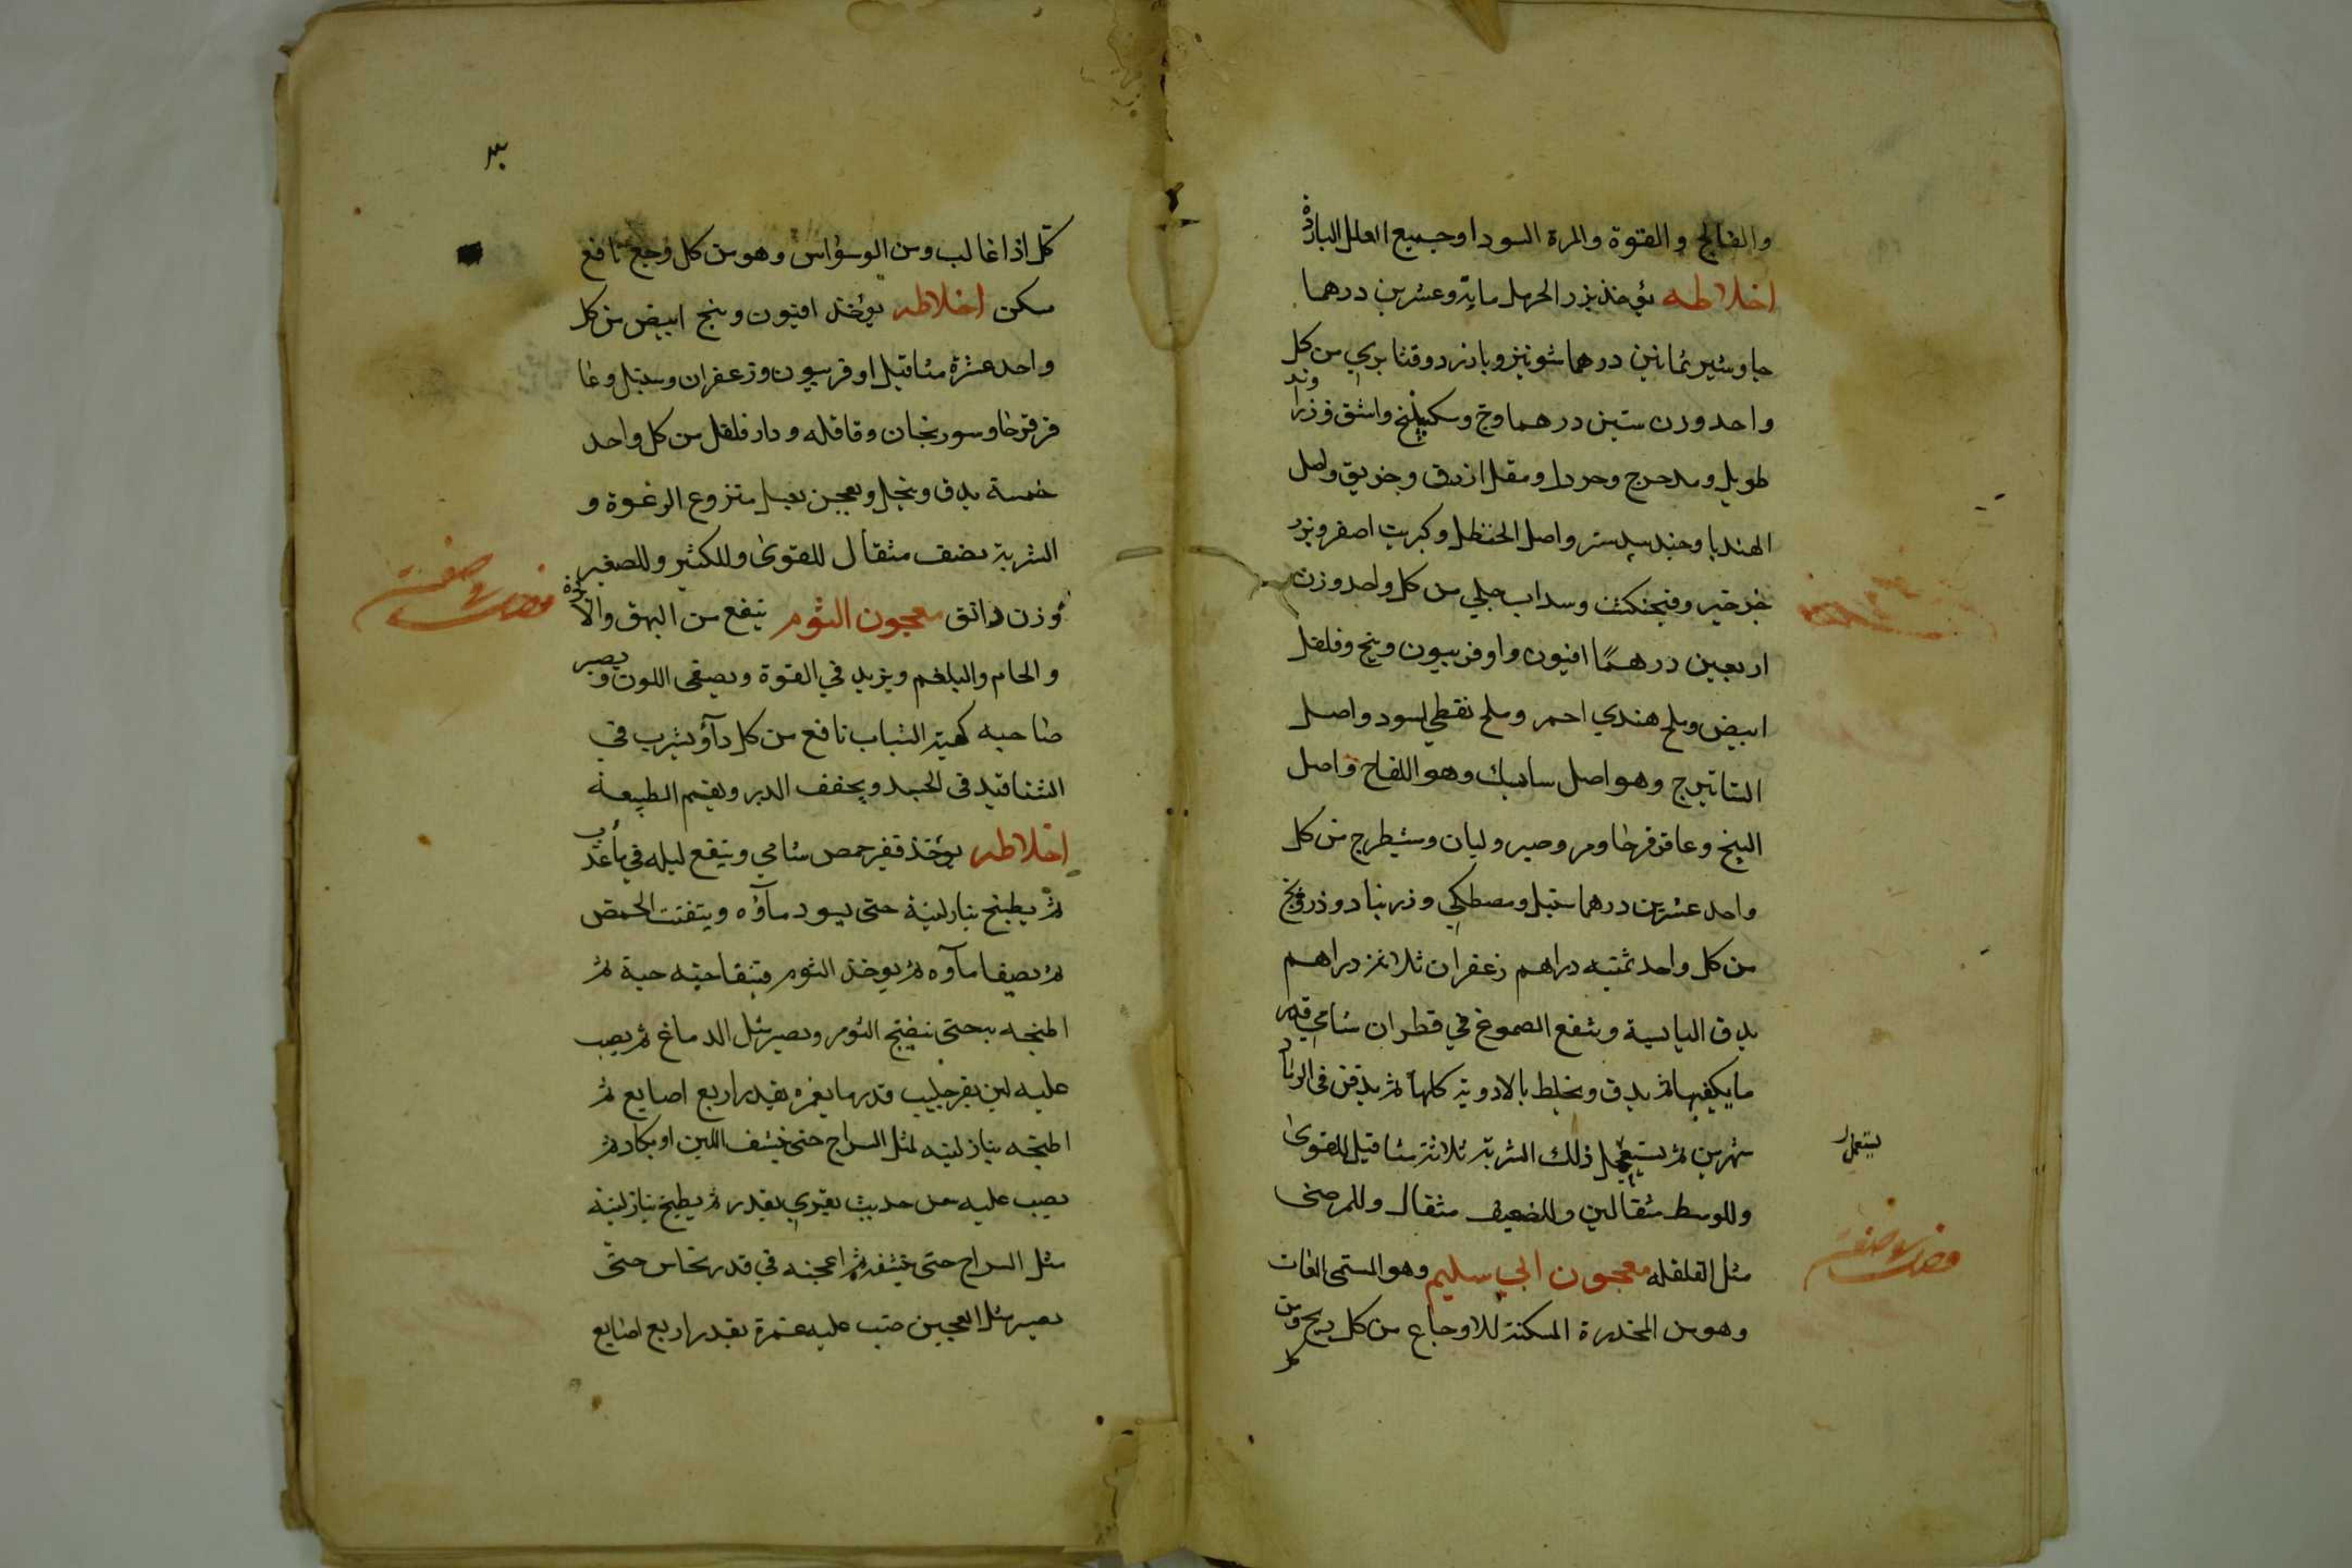 والفالج و القتوة والمرة السودا وجميع العلل الباردة
اخلاطه يؤخذ بزر الحرمل ماية وعشرين درهما
جاوشير ثمانين درهما شونيز وبازرد وقثا بري من كل
واحد وزن ستين درهما وج وسكبينج واشق وزراوند
طويل ومدحرج وخردل ومقل ازرق وخربق واصل
الهندبا وجندبيدستر واصل الحنظل وكبريت اصفر وبزر
جرجير وفنجنكشت وسداب جبلي من كل واحد وزن
اربعين درهمًا افيون واوفربيون وبنج وفلفل
ابيض وملح هندي احمر وملح نفطي اسود واصل
الشاتيرج وهو اصل سابيك وهو اللفاح واصل
البنج وعاقرقرحا ومر وصبر ولبان وشيطرج من كل
واحد عشرين درهما سنبل ومصطكي وزرنباد وذرونج
من كل واحد ثمنيه دراهم زعفران ثلاثة دراهم
يدق اليابسة وينقع الصموغ في قطران شامي قدر
ما يكفيها ثم يدق ويخلط بالادوية كلها ثم يدفن في الرماد
شهرين ثم يستعمل ذلك الشربة ثلاثة مثاقيل للقوى
يستعمل
وللوسط مثقالين وللضعيف مثقال وللمرضى
مثل الفلفله معجون ابي سليم وهو المسمى الغاث
وهو من المخدرة المسكنة للاوجاع من كل ريح ومن
كل
كل اذا غالب ومن الوسواس وهو من كل وجع نافع
مسكن اخلاطه يؤخذ افيون وبنج ابيض من كل
واحد عشرة مثاقيل اوفربيون وزعفران وسنبل وعا
قرقرحا وسورنجان وقاقله ودارفلفل من كل واحد
خمسة يدق وينخل ويعجن بعسل منزوع الرغوة و
الشربة نصف مثقال للقوى وللكثير وللصغير
وزن دانق معجون الثوم ينفع من البهق والا
والحام والبلغم ويزيد في القوة ويصفى اللون ويصير
صاحبه كهيئة الشباب نافع من كل دآؤ يشرب في
الشتا فيدفى الجسد ويخفف الدبر ويقيم الطبيعة
اخلاطه يؤخذ قفيز حمص شامي وينقع ليله في مأ عذب
ثم يطبخ بنار لينة حتى يسود مآؤه ويتفتت الحمص
ثم يصفا مآوه ثم يوخذ الثوم فينقا حبة حبة ثم
اطبخه بحتى ينضج الثوم ويصير مثل الدماغ ثم يصب
عليه لبن بقر حليب قدر ما يغمره بقدر اربع اصابع ثم
اطبخه بنار لينه لمثل السراج حتى ينشف اللبن او يكاد ثم
يصب عليه سمن حديث بقري بقدر ثم يطبخ بنار لينة
مثل السراج حتى ينشفه ثم اعجنه في قدر نحاس حتى
يصير مثل العجين صب عليه غمرة بقدر اربع اصابع